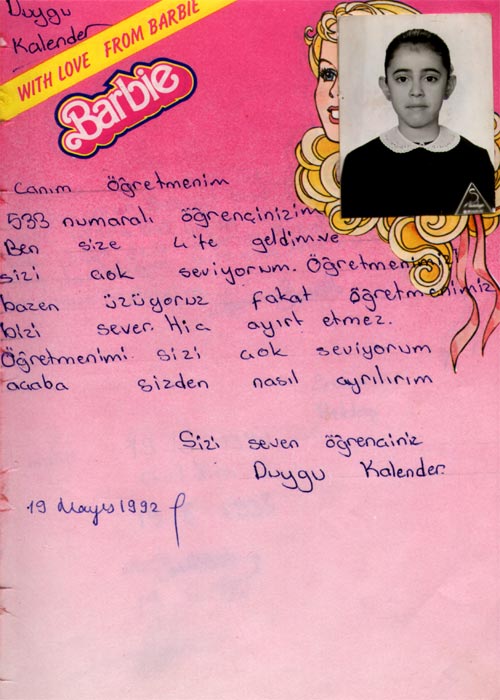 Duygu
Kalender
WITH LOVE FROM BARBIE
Barbie
Canım öğretmenim
533 numaralı öğrencinizim
Ben size 4'te geldim.ve
sizi çok seviyorum. Öğretmenimizi
bazen üzüyoruz fakat öğretmenimiz
bizi sever. Hiç ayırt etmez.
Öğretmenimi sizi çok seviyorum
acaba sizden nasıl ayrılırım
Sizi seven öğrenciniz
Duygu Kalender.
19 Mayıs 1992